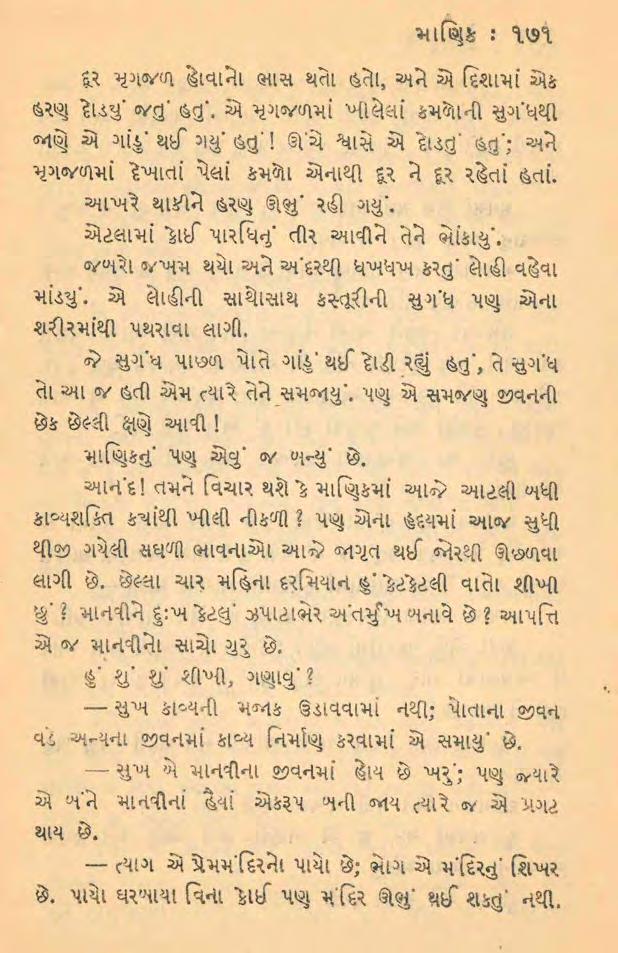 માણિક : ૧૭૧
દૂર મૃગજળ હોવાનો ભાસ થતો હતો, અને એ દિશામાં એક
હરણ દોડયું જતું હતું. એ મૃગજળમાં ખીલેલાં કમળોની સુગંધથી
જાણે એ ગાંડું થઈ ગયું હતું! ઊંચે શ્વાસે એ દોડતું હતું; અને
મૃગજળમાં દેખાતાં પેલાં કમળો એનાથી દૂર ને દૂર રહેતાં હતાં.
આખરે થાકીને હરણ ઊભું રહી ગયું.
એટલામાં કોઈ પારધિનું તીર આવીને તેને ભોંકાયું.
જબરો જખમ થયો અને અંદરથી ધખધખ કરતું લોહી વહેવા
માંડયું. એ લોહીની સાથોસાથ કસ્તૂરીની સુગંધ પણ એના
શરીરમાંથી પથરાવા લાગી.
જે સુગંધ પાછળ પોતે ગાંડું થઈ દોડી રહ્યું હતું, તે સુગંધ
તો આ જ હતી એમ ત્યારે તેને સમજાયું. પણ એ સમજણ જીવનની
છેક છેલ્લી ક્ષણે આવી!
માણિકનું પણ એવું જ બન્યું છે.
આનંદ! તમને વિચાર થશે કે માણિકમાં આજે આટલી બધી
કાવ્યશક્તિ કયાંથી ખીલી નીકળી? પણ એના હૃદયમાં આજ સુધી
થીજી ગયેલી સઘળી ભાવનાઓ આજે જાગૃત થઈ જોરથી ઊછળવા
લાગી છે. છેલ્લા ચાર મહિના દરમિયાન હું કેટકેટલી વાતો શીખી
છું? માનવીને દુઃખ કેટલું ઝપાટાભેર અંતર્મુખ બનાવે છે? આપત્તિ
એ જ માનવીનો સાચો ગુરુ છે.
હું શું શું શીખી, ગણાવું?
— સુખ કાવ્યની મજાક ઉડાવવામાં નથી; પોતાના જીવન
વડે અન્યના જીવનમાં કાવ્ય નિર્માણ કરવામાં એ સમાયું છે.
— સુખ બે માનવીના જીવનમાં હોય છે ખરું; પણ જ્યારે
એ બંને માનવીનાં હૈયાં એકરૂપ બની જાય ત્યારે જ એ પ્રગટ
થાય છે.
— ત્યાગ એ પ્રેમમંદિરનો પાયો છે; ભોગ એ મંદિરનું શિખર
છે. પાયો ઘરબાયા વિના કોઈ પણ મંદિર ઊભું થઈ શકતું નથી.